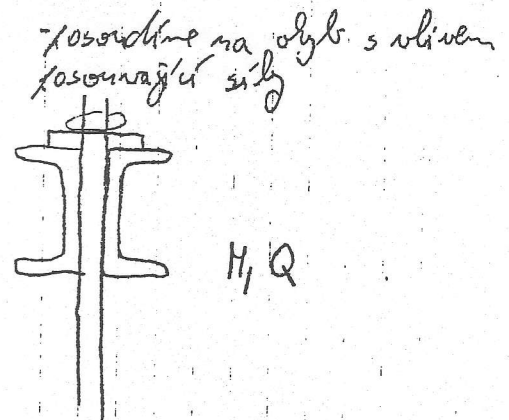 - posoudíme na ohyb s vlivem
posouvající síly
M, Q